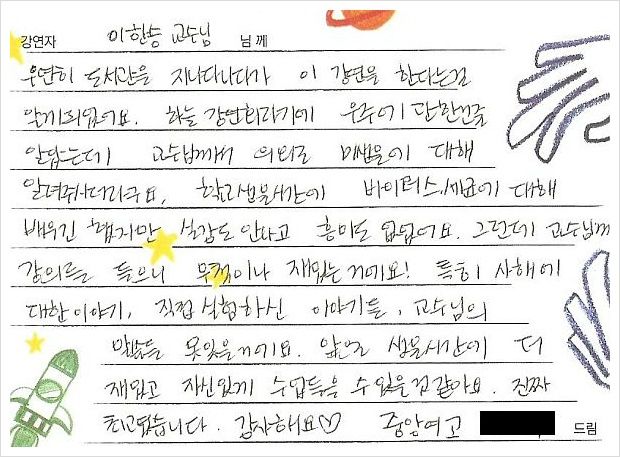 강연자 이한승 교수님 님께
우연히 도서관을 지나다니다가 이 강연을 한다는걸
알게되었어요. 하늘 강연회라기에 우주에 관한건줄
알았는데 교수님께서 의외로 미생물에 대해
알려주시더라구요. 학교생물시간에 바이러스·세균에 대해
배우긴 했지만 실감도 안나고 흥미도 없었어요. 그런데 교수님께
강의를 들으니 무척이나 재밌는거에요! 특히 사해에
대한이야기, 직접 실험하신 이야기들, 교수님의
말씀들 못잊을거에요. 앞으로 생물시간에 더
재밌고 자신있게 수업들을 수 있을것 같아요. 진짜
최고였습니다. 감사해요♡ 중앙여고 드림